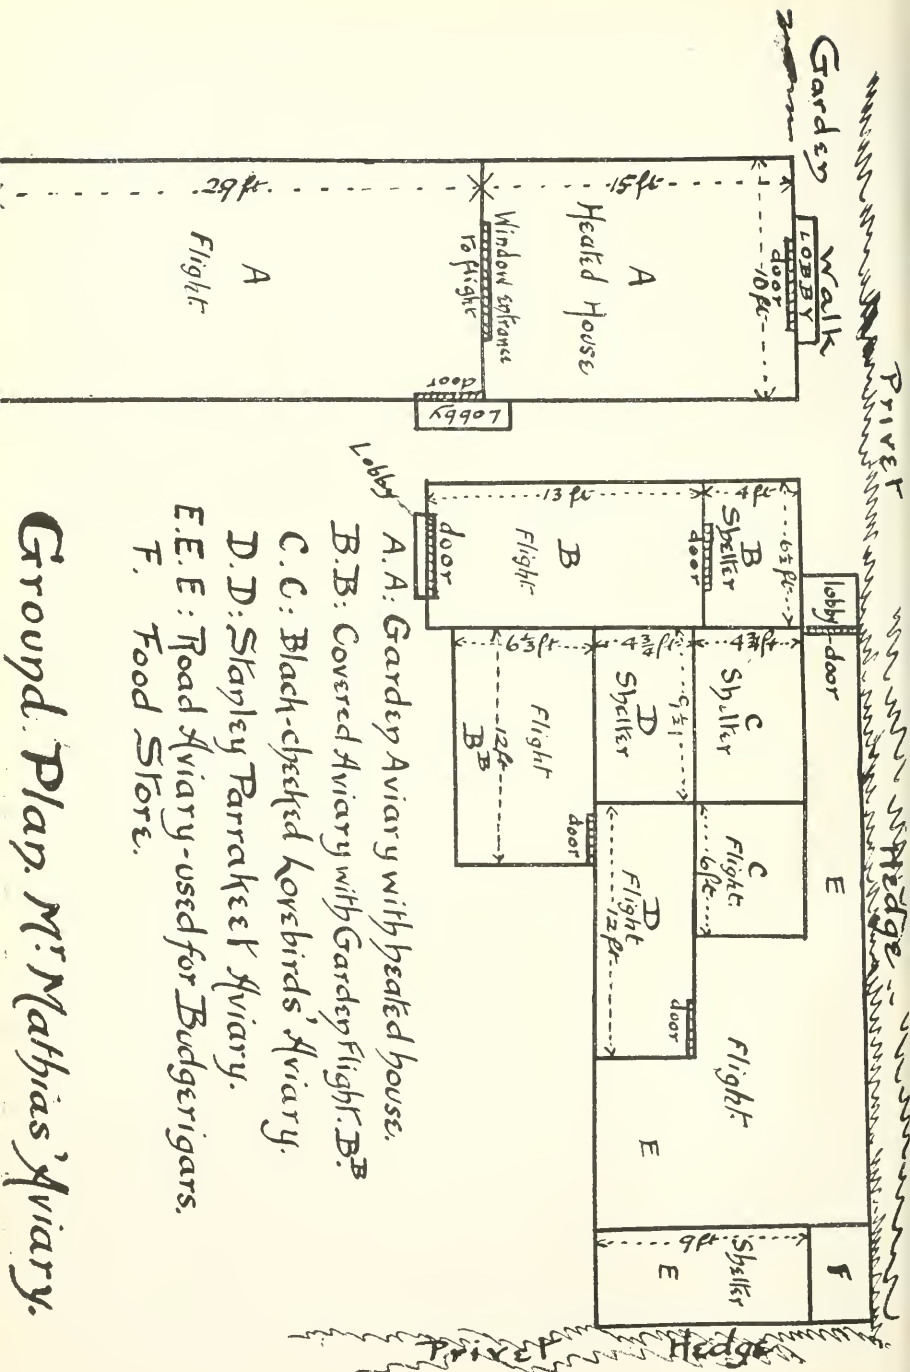 Garden Walk
Privet Hedge
LOBBY
door
10 ft
15 ft
A
Heated House
Window entrance
to flight
29 ft
A
Flight
door
Lobby
4 ft
6½ ft
B
Shelter
door
13 ft
B
Flight
door
Lobby
lobby
door
4¾ ft
C
Shelter
C
Flight
6 ft
4¾ ft
D
Shelter
D
Flight
12 ft
door
6⅓ ft
Flight
12 ft
B^B
door
E
Flight
E
9 ft
Shelter
E
F
Privet Hedge
A. A: Garden Aviary with heated house.
B. B: Covered Aviary with Garden Flight. B^B
C. C: Black-cheeked Lovebirds' Aviary.
D. D: Stanley Parrakeet Aviary.
E. E. E: Road Aviary - used for Budgerigars.
F. Food Store.
Ground Plan. Mr Mathias' Aviary.